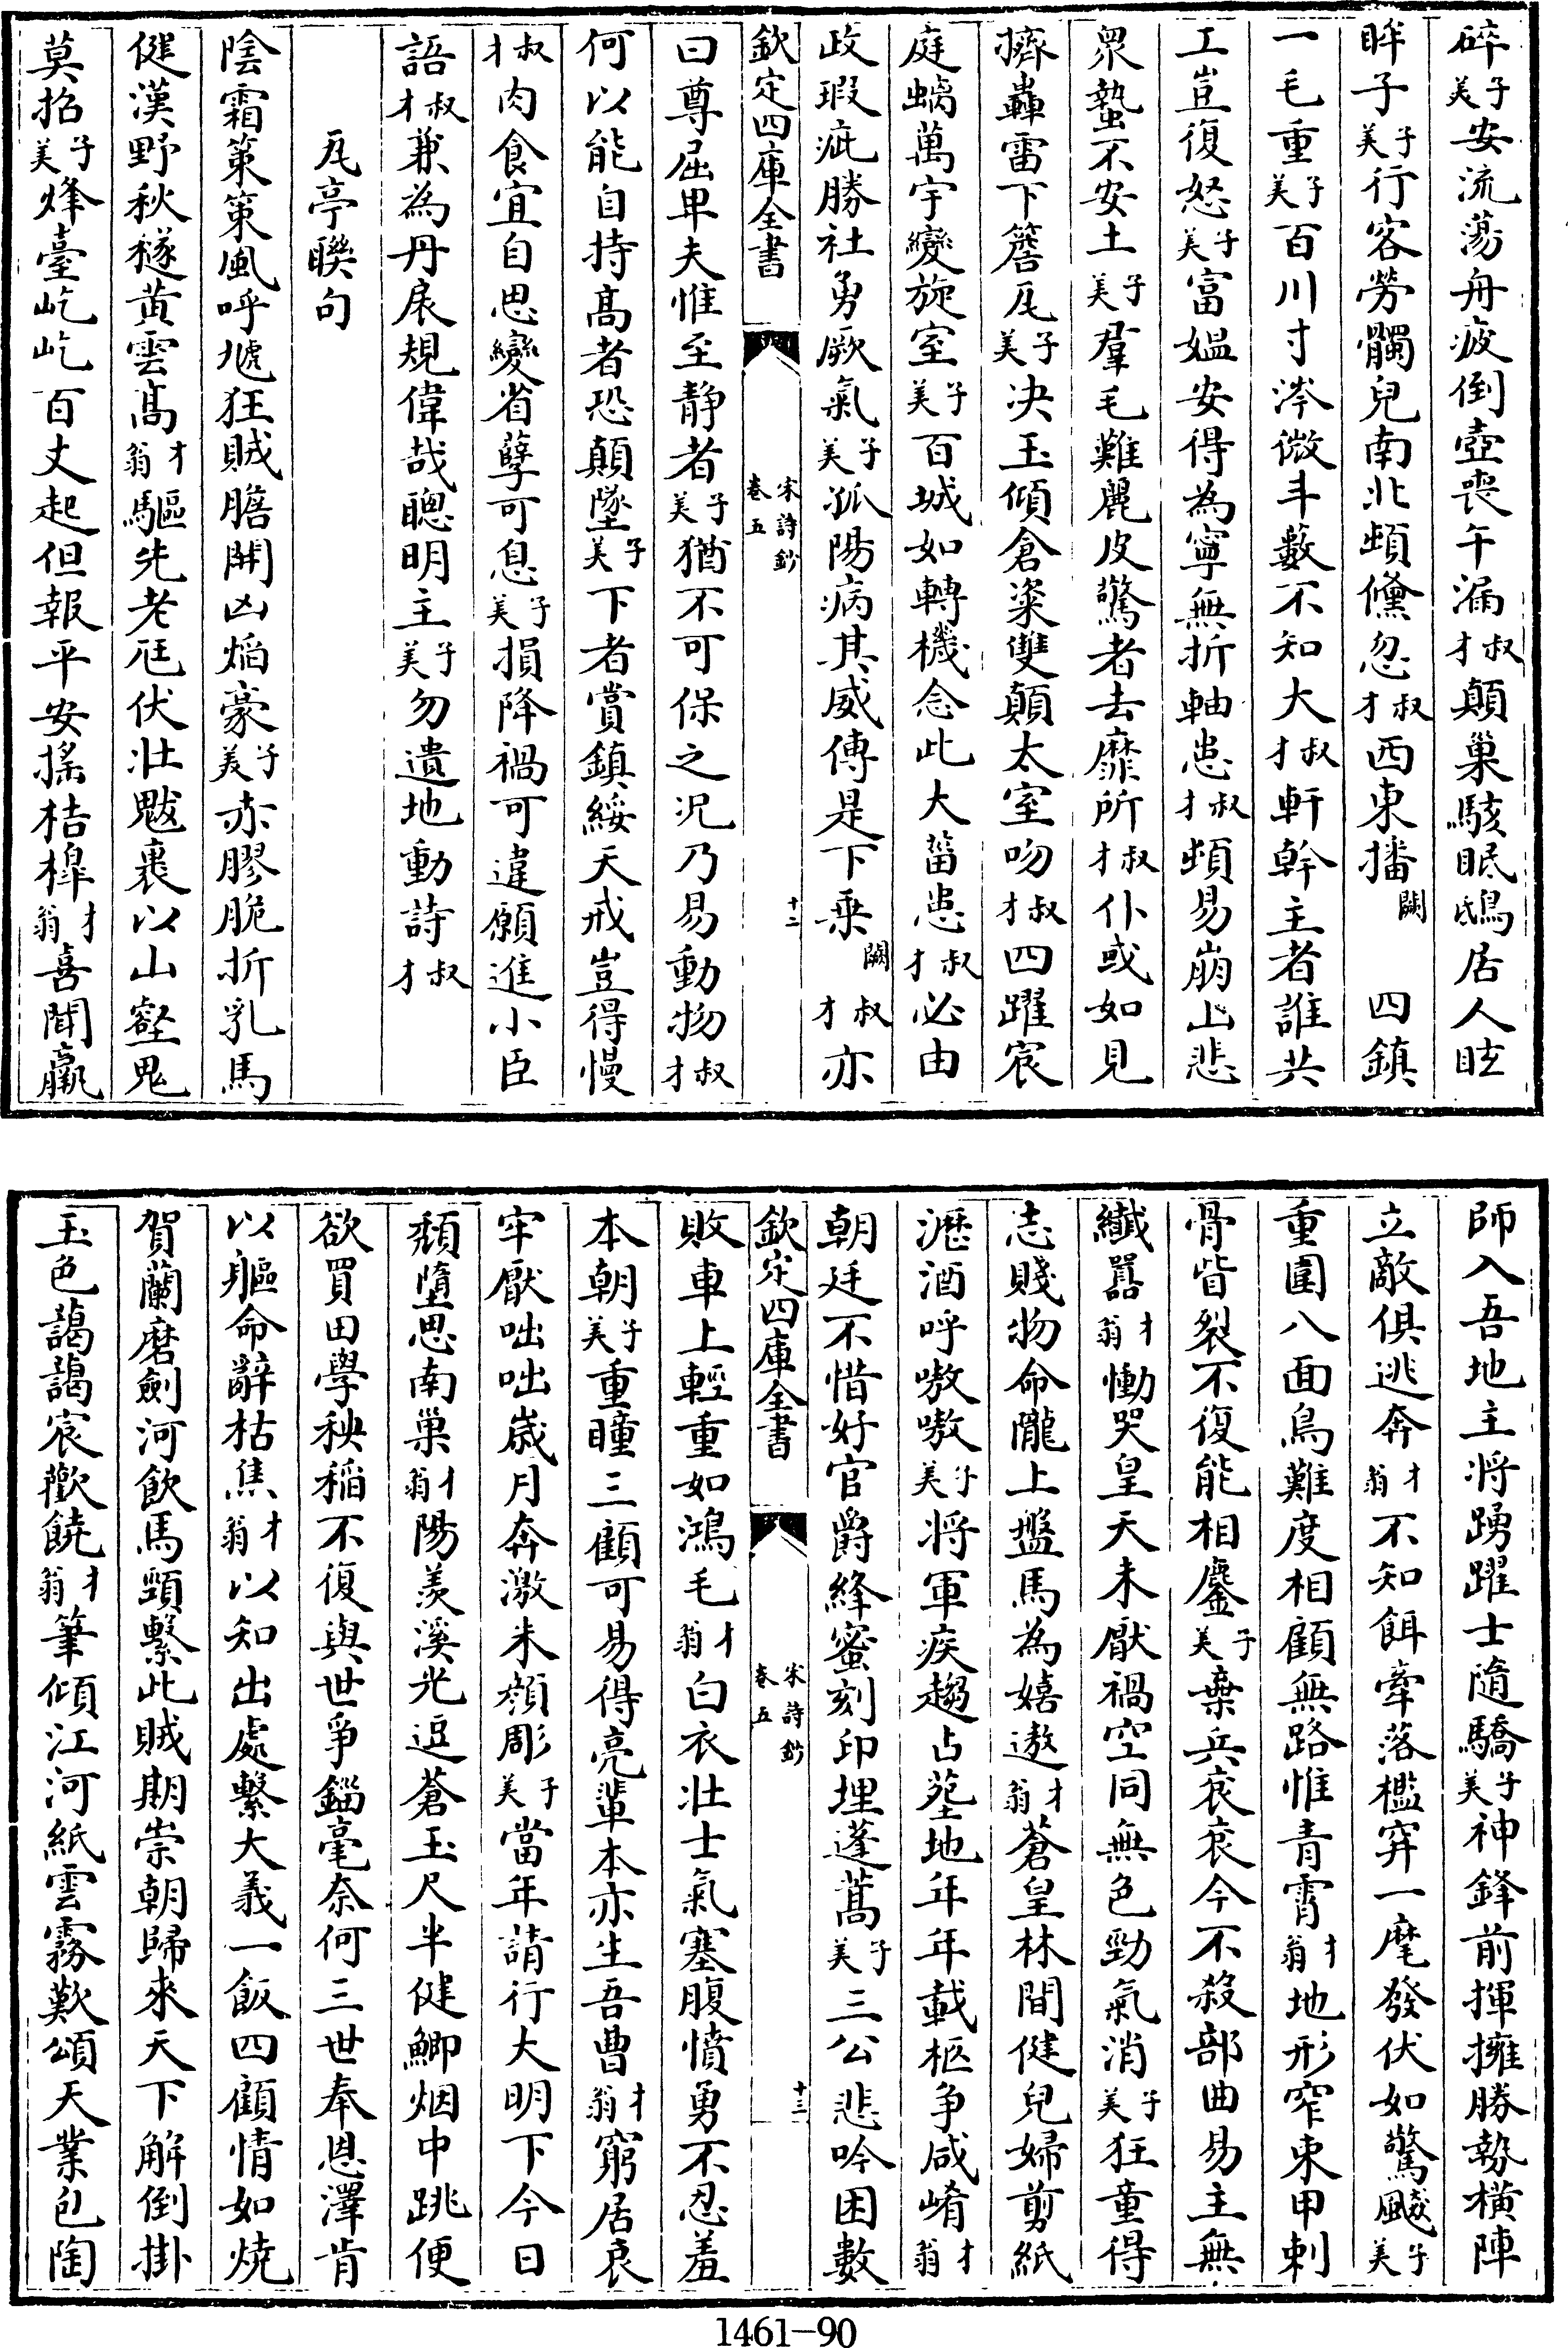 碎子美安流蕩舟疲倒壺喪午漏叔才顛巢駭眠鴟居人眩
眸子子美行客勞髑兒南北頻儵忽叔才西東播闕四鎮
一毛重子美百川寸涔微斗藪不知大叔才軒幹主者誰共
工豈復怒子美富媼安得為寧無折軸患叔才頻易崩山悲
衆蟄不安土子美羣毛難麗皮驚者去靡所叔才仆或如見
擠轟雷下簷瓦子美决玉傾倉粢雙顛太室吻叔才四躍宸
庭螭萬宇變旋室子美百城如轉機念此大菑患叔才必由
政瑕疵勝社勇厥氣子美孤陽病其威傳是下乗闕叔才亦
欽定四庫全書 宋詩鈔 卷五 十二
曰尊屈卑夫惟至靜者子美猶不可保之况乃易動物叔才
何以能自持髙者恐顛墜子美下者賞鎮綏天戒豈得慢
叔才肉食宜自思變省孽可息子美損降禍可違願進小臣
語叔才兼為丹扆規偉哉聰明主子美勿遺地動詩叔才
瓦亭聨句
陰霜策策風呼虓狂賊膽開凶焰豪子美赤膠脆折乳馬
健漢野秋穟黄雲髙才翁驅先老尫伏壯魃裹以山壑鬼
莫招子美烽臺屹屹百丈起但報平安搖桔槹才翁喜聞羸
師入吾地主將踴躍士隨驕子美神鋒前揮擁勝勢横陣
立敵俱逃奔才翁不知餌牽落檻穽一麾發伏如驚飈子美
重圍八面鳥難度相顧無路惟青霄才翁地形窄束甲刺
骨眥裂不復能相鏖子美棄兵衮衮今不殺部曲易主無
纖囂才翁慟哭皇天未厭禍空同無色勁氣消子美狂童得
志賤物命隴上盤馬為嬉遨才翁蒼皇林間健兒婦剪紙
瀝酒呼嗷嗷子美將軍疾趨占葬地年年載柩争咸崤才翁
朝廷不惜好官爵絳蜜刻印埋蓬蒿子美三公悲吟困數
欽定四庫全書 宋詩鈔 卷五 十三
敗車上輕重如鴻毛才翁白衣壯士氣塞腹憤勇不忍羞
本朝子美重瞳三顧可易得亮輩本亦生吾曹才翁窮居哀
牢厭咄咄嵗月奔激朱顔彫子美當年請行大明下今日
頽墮思南巢才翁陽羨溪光逗蒼玉尺半健鯽烟中跳便
欲買田學秧稻不復與世爭錙毫奈何三世奉恩澤肯
以軀命辭枯焦才翁以知出處繫大義一飯四顧情如燒
賀蘭磨劍河飲馬頸繫此賊期崇朝歸來天下解倒掛
玉色藹藹宸歡饒才翁筆傾江河紙雲霧歎頌天業包陶
1461-90